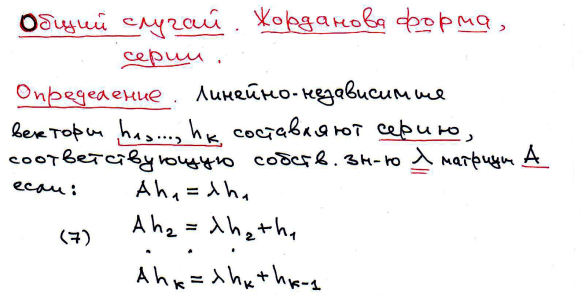 Общий случай. Жорданова форма,
серии.
Определение. Линейно-независимые
векторы h₁,...,hₖ составляют серию,
соответствующую собств. зн-ю λ матрицы A
если: Ah₁ = λh₁
(7) Ah₂ = λh₂ + h₁
. . .
Ahₖ = λhₖ + hₖ₋₁